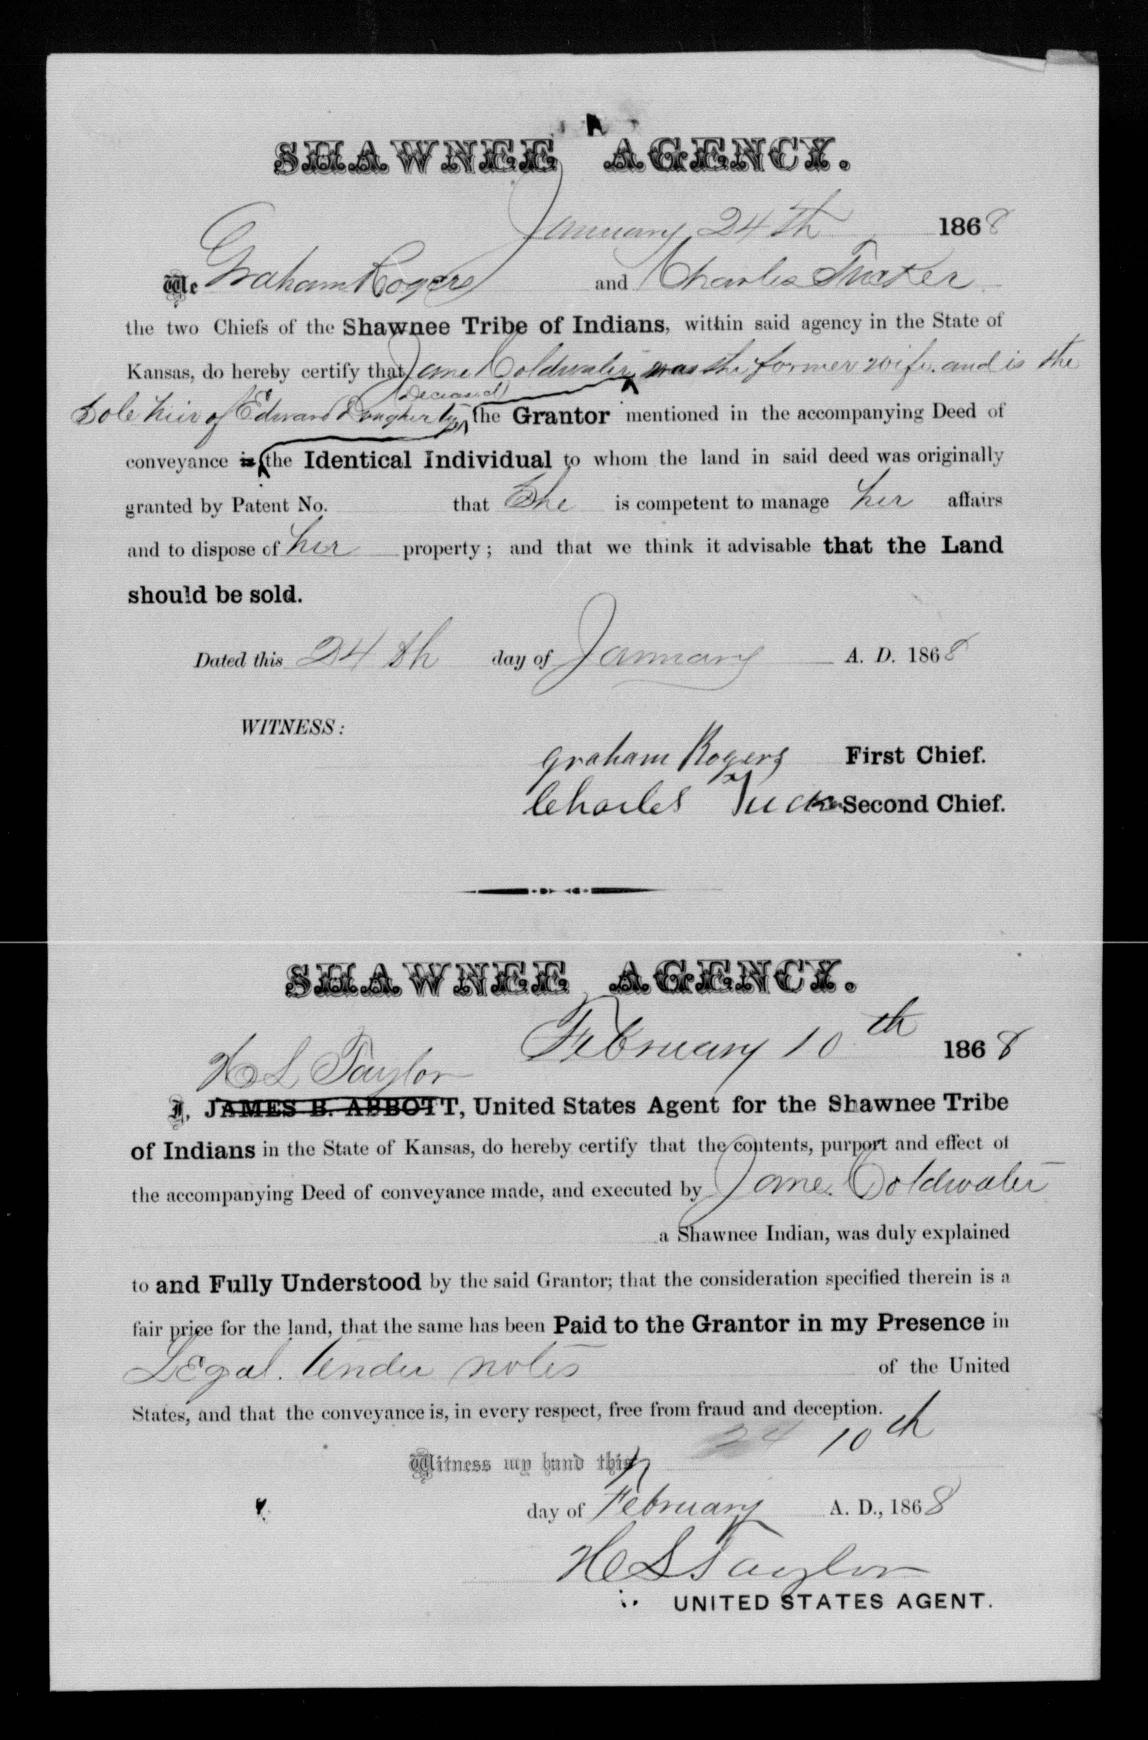 SHAWNEE AGENCY.
January 24th 1868
We Graham Rogers and Charles Tucker
the two Chiefs of the Shawnee Tribe of Indians, within said agency in the State of
Kansas, do hereby certify that Jane Coldwater was the former wife. and is the
(Deceased)
Sole heir of Edward Daugherty, the Grantor mentioned in the accompanying Deed of
conveyance is the Identical Individual to whom the land in said deed was originally
granted by Patent No. that She is competent to manage her affairs
and to dispose of her property; and that we think it advisable that the Land
should be sold.
Dated this 24th day of January A. D. 1868
WITNESS:
graham Rogers First Chief.
Charles Tucker Second Chief.
SHAWNEE AGENCY.
February 10th 1868
H L Taylor
I, JAMES B. ABBOTT, United States Agent for the Shawnee Tribe
of Indians in the State of Kansas, do hereby certify that the contents, purport and effect of
the accompanying Deed of conveyance made, and executed by Jane Coldwater
a Shawnee Indian, was duly explained
to and Fully Understood by the said Grantor; that the consideration specified therein is a
fair price for the land, that the same has been Paid to the Grantor in my Presence in
Legal. tender notes of the United
States, and that the conveyance is, in every respect, free from fraud and deception.
Witness my hand this 24 10th
day of February A. D., 1868
H L Taylor
UNITED STATES AGENT.